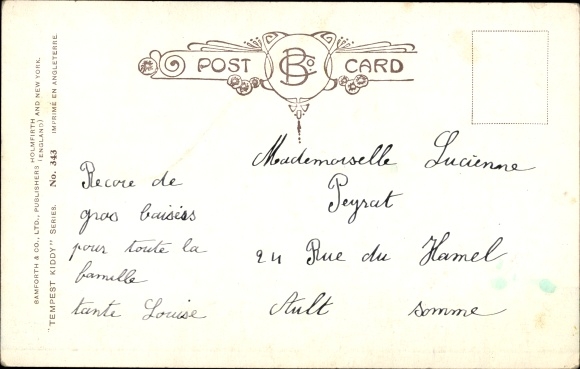 POST CARD
B & Co.
BAMFORTH & CO., LTD., PUBLISHERS HOLMFIRTH (ENGLAND) AND NEW YORK.
"TEMPEST KIDDY" SERIES. No. 343 IMPRIMÉ EN ANGLETERRE.
Recore de
gros baisées
pour toute la
famille
tante Louise
Mademoiselle Lucienne
Peyrat
24 Rue du Hamel
Ault somme